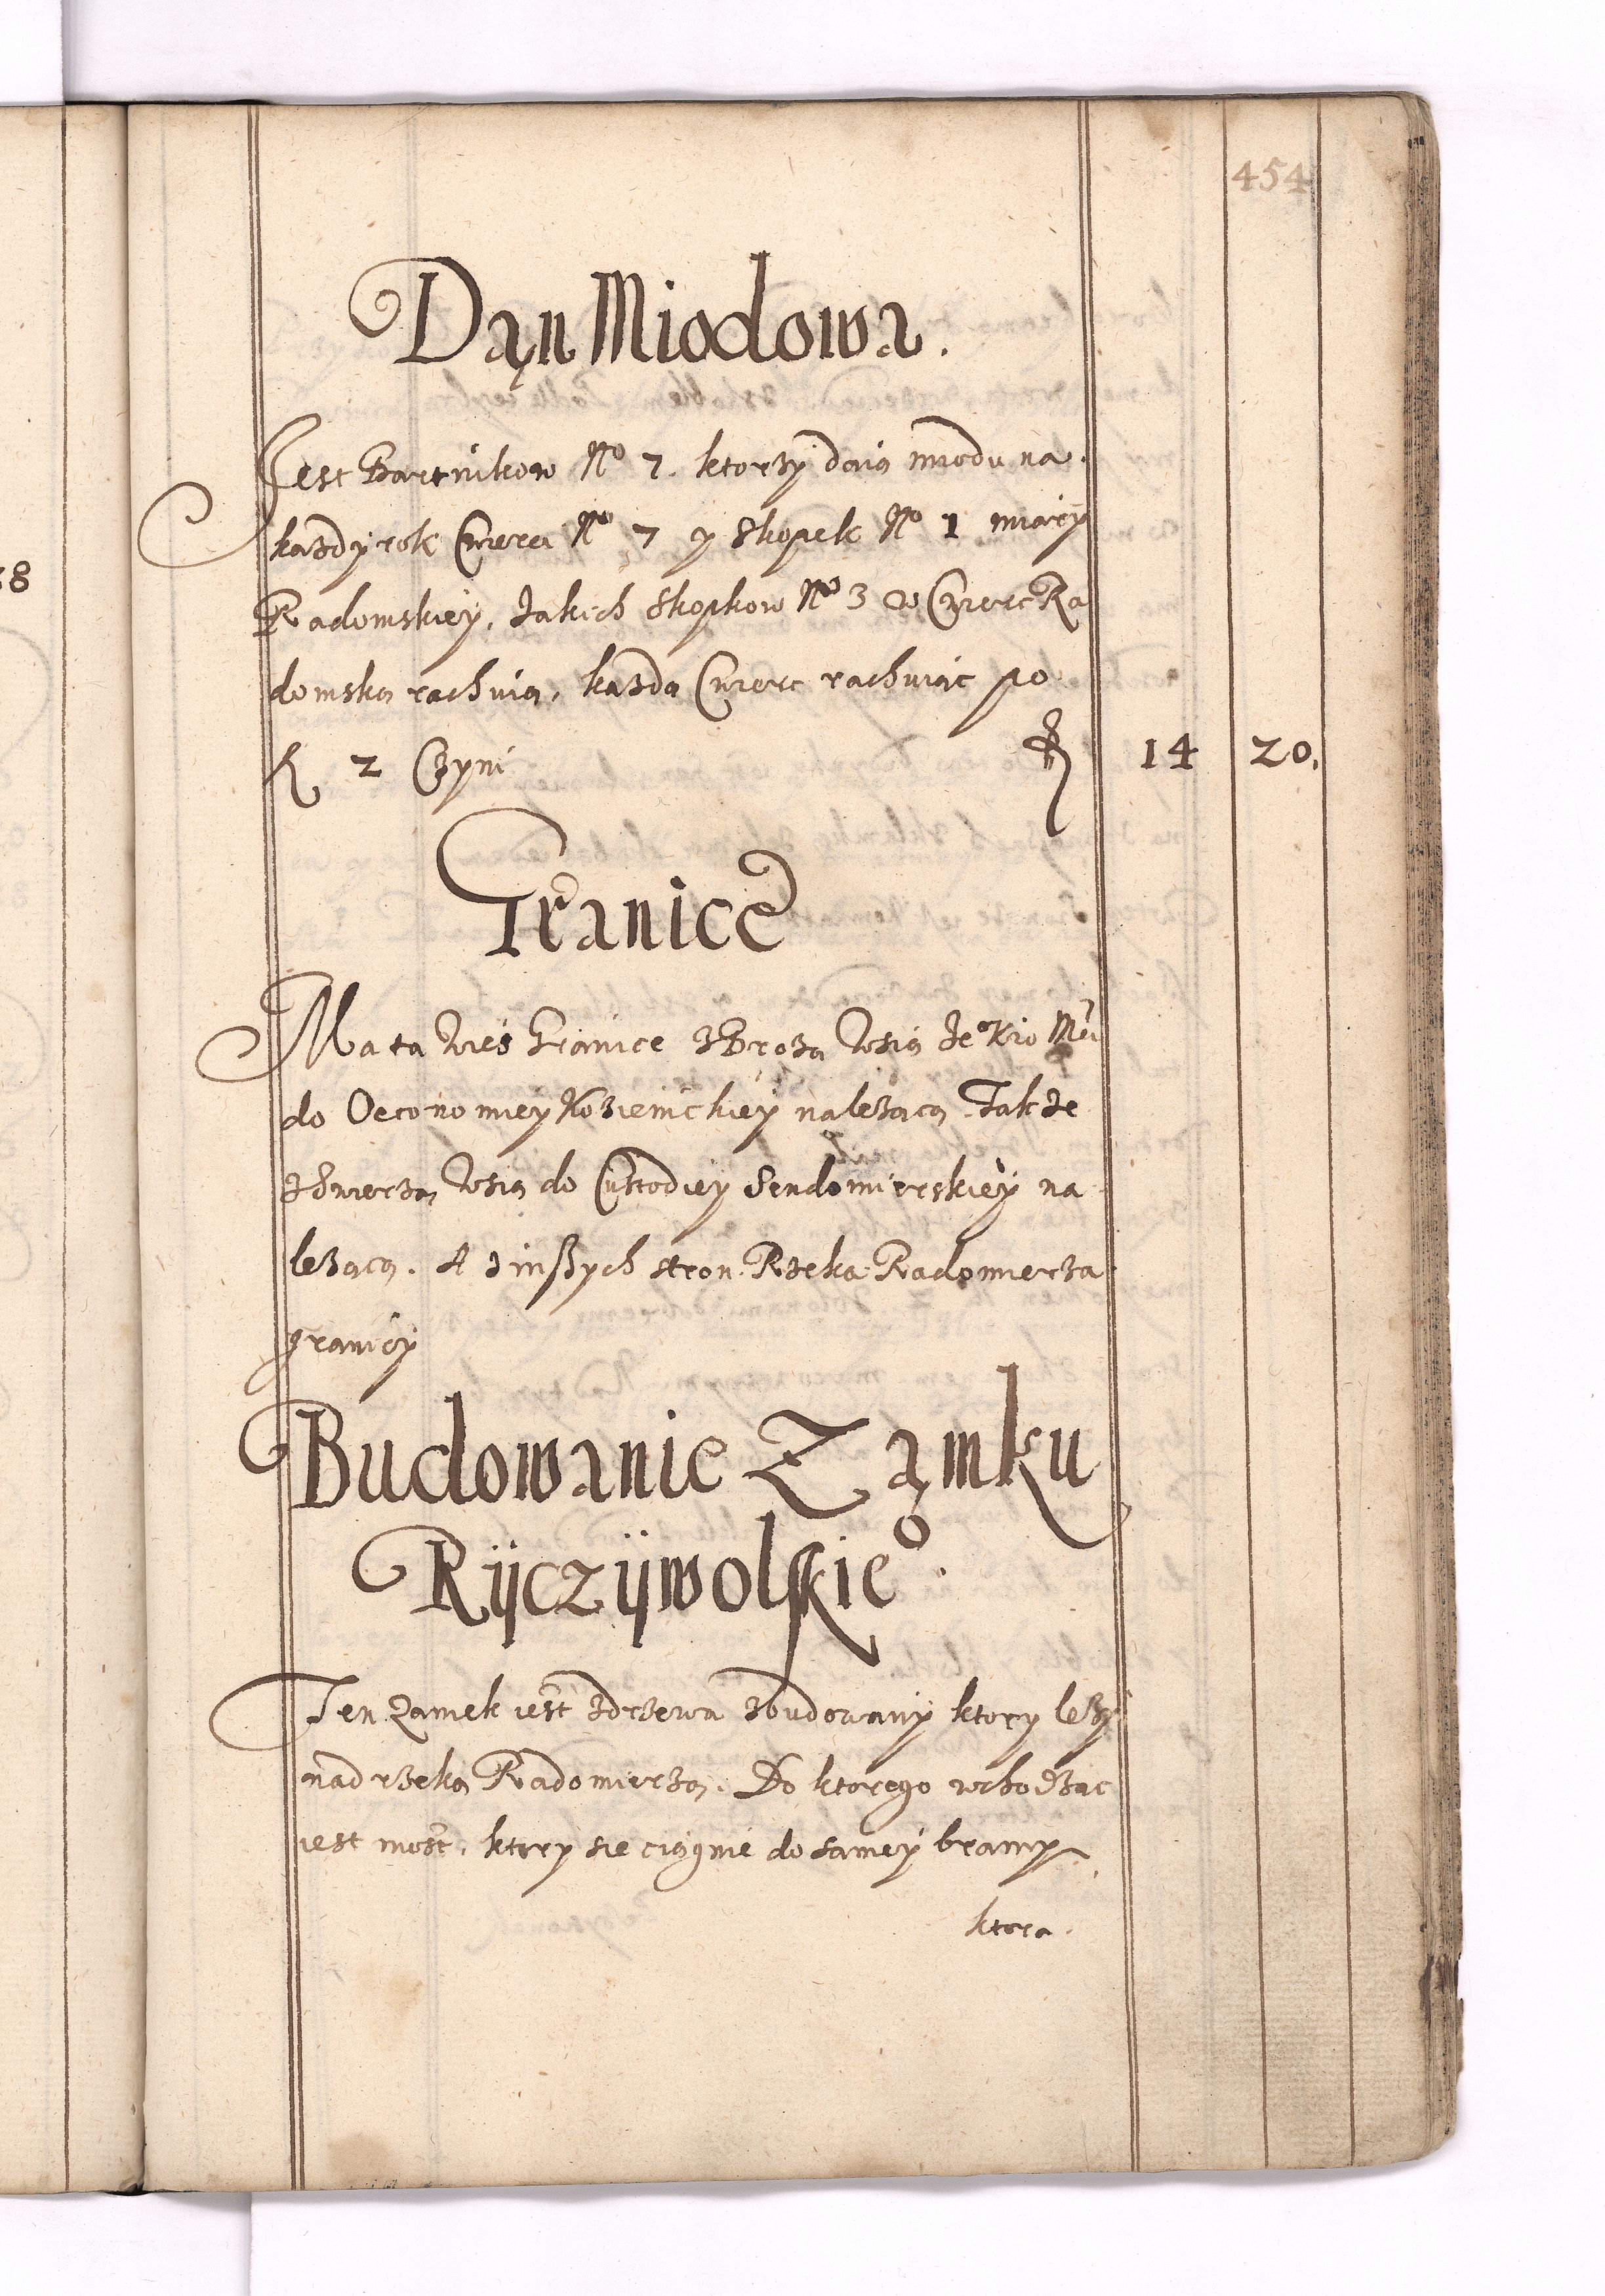 454
Dąn Miodowa.
Jest Bartnikow No 7. ktorzy daią miodu na
kazdy rok Cwierci No 7 y Skopek No 1 miary
Radomskiey, Jakich Skopkow No 3 w Cwierc Ra
domską rachuią, kazdą Cwierc rachuiąc po
fl 2 Czyni fl 14 20.
Granice
Ma ta Wieś Granice z Brozą Wsią Je Kro Mci
do Oeconomiey Kozienickiey nalezącą. Takze
z Swierzą Wsią do Custodiey Sendomierskiey na
lezącą. A z inszych stron Rzeka Radomierza
graniczy
Budowanie Ząmku
Ryczywolskieo.
Ten Zamek iest z drzewa zbudowany ktory lezy
nad rzeką Radomierzą. Do ktorego wchodząc
iest most, ktory sie ciągnie do samey bramy
ktora.
58